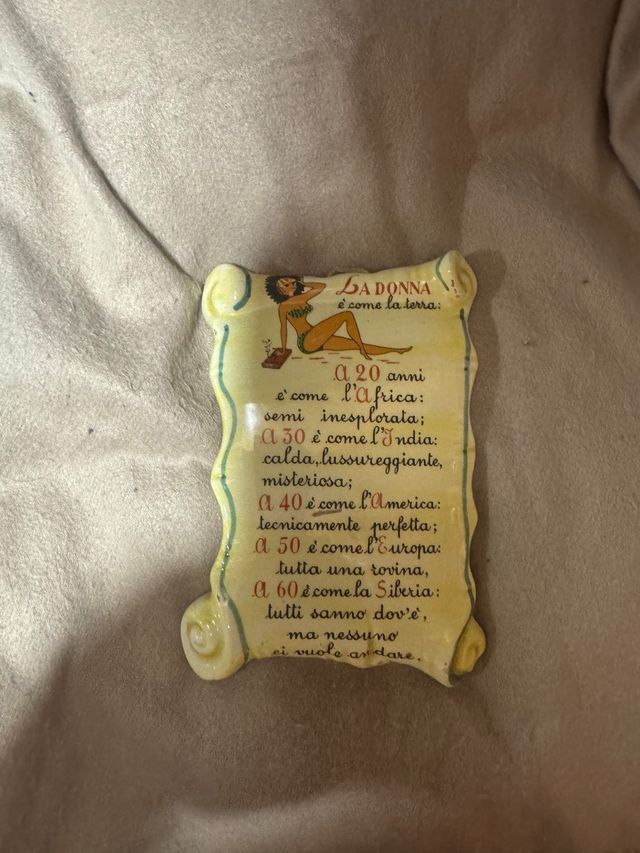 LA DONNA
è come la terra:
A 20 anni
è come l'Africa:
semi inesplorata;
A 30 è come l'India:
calda, lussureggiante,
misteriosa;
A 40 è come l'America:
tecnicamente perfetta;
A 50 è come l'Europa:
tutta una rovina,
A 60 è come la Siberia:
tutti sanno dov'è,
ma nessuno
ci vuole andare.